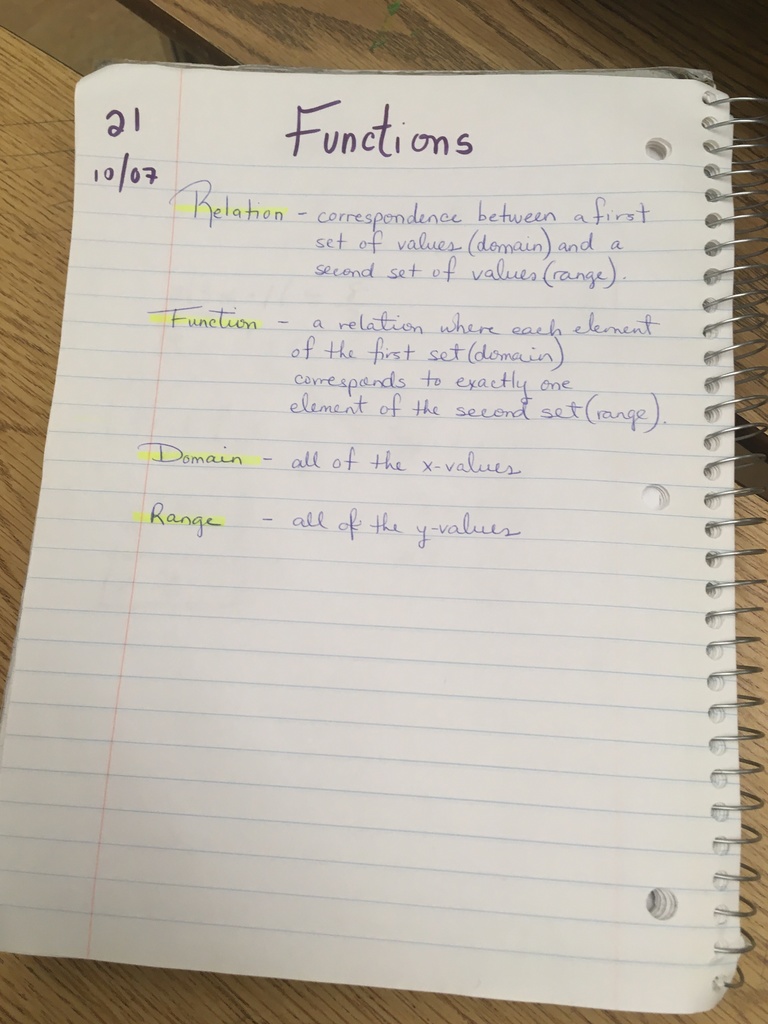 21
Functions
10/07
Relation - correspondence between a first
set of values (domain) and a
second set of values (range).
Function - a relation where each element
of the first set (domain)
corresponds to exactly one
element of the second set (range).
Domain - all of the x-values
Range - all of the y-values